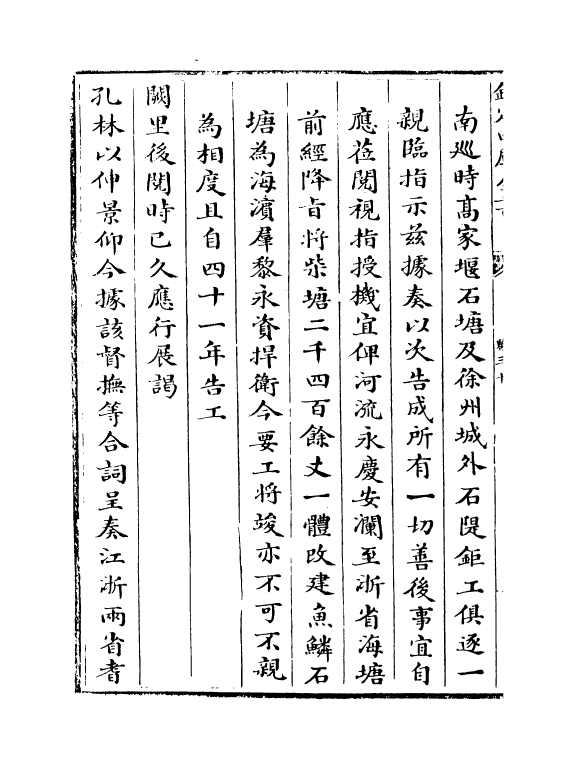 南廵時髙家堰石塘及徐州城外石隄鉅工俱逐一
親臨指示兹據奏以次告成所有一切善後事宜自
應莅閱視指授機宜俾河流永慶安瀾至浙省海塘
前經降旨將柴塘二千四百餘丈一體改建魚鱗石
塘為海濱羣黎永資捍衛今要工將竣亦不可不親
為相度且自四十一年告工
闕里後閱時已久應行展謁
孔林以伸景仰今據該督撫等合詞呈奏江浙兩省耆